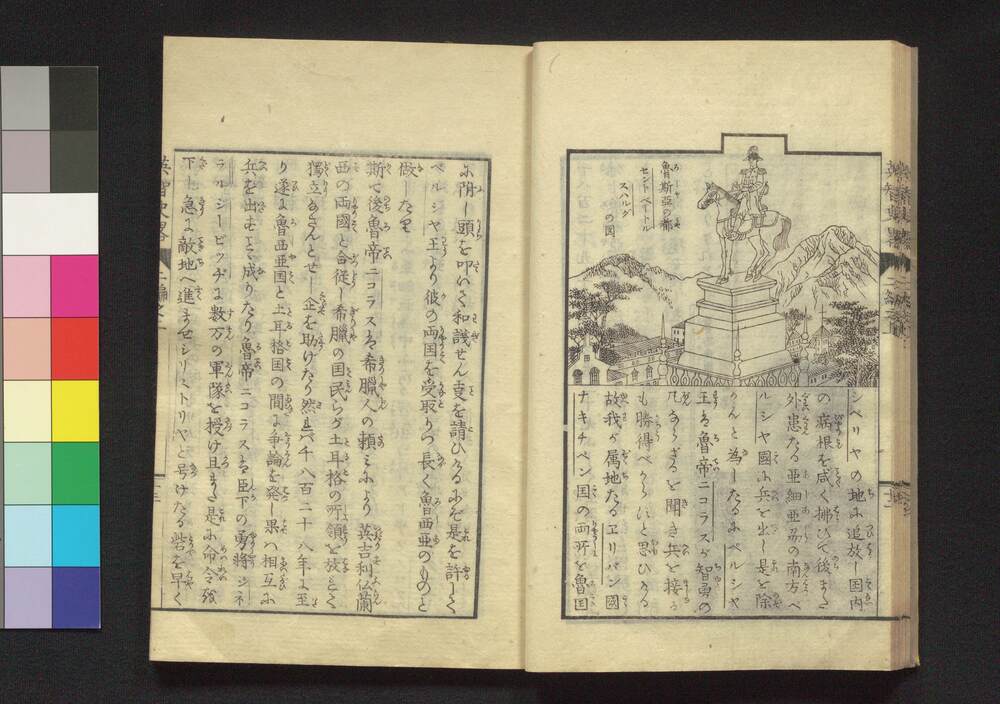 魯斯亞の都
セントペートル
スハルグ
の図
シベリヤの地に追放し国内
の病根を咸く掃ひて後また
外患たる亜細亜州の南方ペ
ルシヤ國に兵を出し是を除
かんと為したるにペルシヤ
王は魯帝ニコラスが智勇の
凡ならざるを聞き兵を接る
も勝得べからずと思ひける
故我が属地たるヱリバン國
ナキチペン国の両所を魯国
に附し頭を叩いて和議せん事を請ひけるにぞ是を許して
ペルシヤ王より彼の両国を受取りつつ長く魯西亜のものと
做したり
斯て後魯帝ニコラスは希臘人の頼みにより英吉利仏蘭
西の両國と合従し希臘の国民らが土耳格の所領を放れて
獨立なさんとせし企を助けたり然るに一千八百二十八年に至
り遂に魯西亜国と土耳格国の間に争論を発し果ハ相互に
兵を出すことに成りたり魯帝ニコラスは臣下の勇将ジネ
ラルジービッチに数万の軍隊を授け且また是に命令を
下し急に敵地へ進ませシリストリヤと号けたる砦を早く